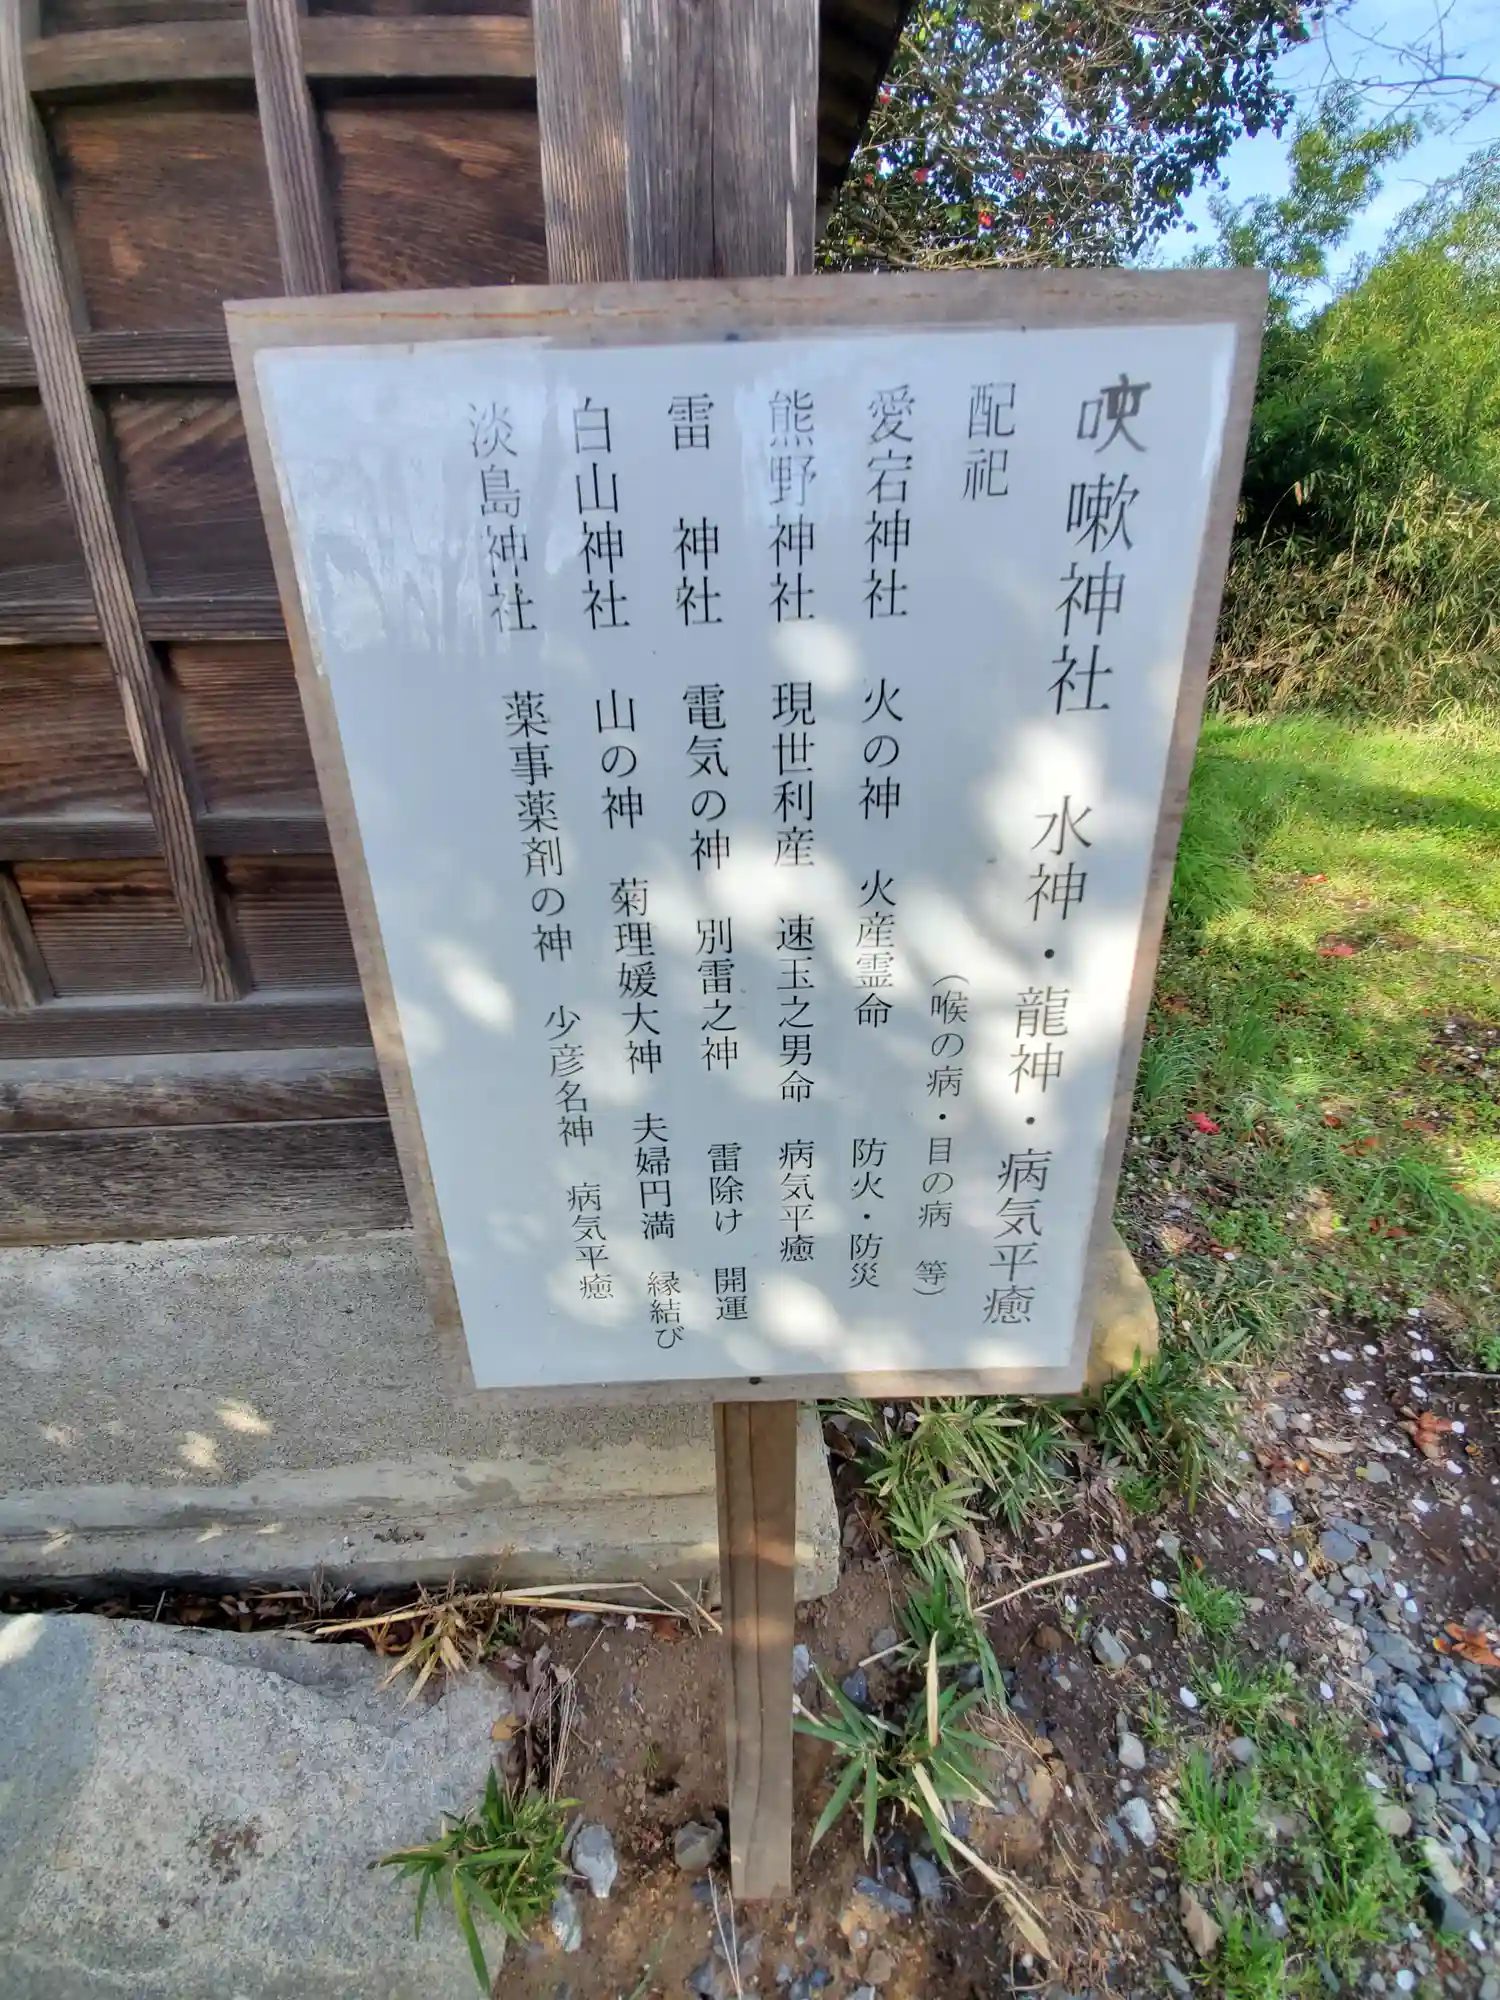 咳嗽神社　水神・龍神・病気平癒
（喉の病・目の病　等）
配祀
愛宕神社　火の神　火産霊命　防火・防災
熊野神社　現世利産　速玉之男命　病気平癒
雷　神社　電気の神　別雷之神　雷除け　開運
白山神社　山の神　菊理媛大神　夫婦円満　縁結び
淡島神社　薬事薬剤の神　少彦名神　病気平癒